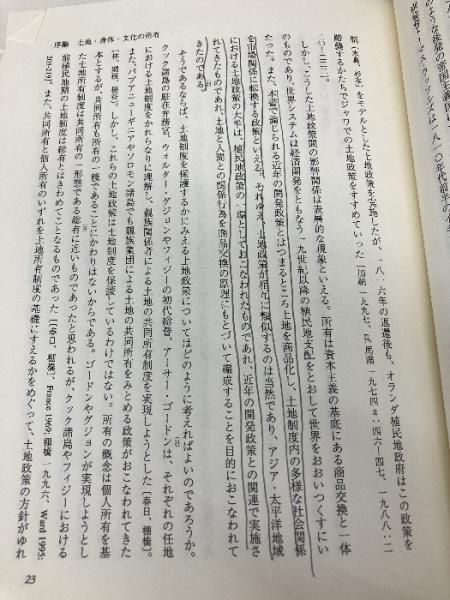 序論　土地・身体・文化の所有
制（本島、宮本）をモデルとした土地政策を実施したが、一八一六年の返還後も、オランダ植民地政府はこの政策を
踏襲するかたちでジャワでの土地政策をすすめていった〔加納 一九九七、
しかし、こうした土地政策間の影響関係は表層的な現象といえる。所有は資本主義の基底にある商品交換と一体
のものであり、世界システムは経済開発をともなう一九世紀以降の植民地支配をとおして世界をおおいつくすにい
たった。また、本書で論じられる近年の開発政策とはつまるところ土地を商品化し、土地制度内の多様な社会関係
を市場関係に転換する政策といえる。それゆえ、土地政策が相互に類似するのは当然であり、アジア・太平洋地域
における土地政策の大半は、植民地政策の一環としておこなわれたものであれ、近年の開発政策との関連で実施さ
れてきたものであれ、土地と人間との関係行為を商品交換の原理にもとづいて編成することを目的におこなわれて
きたのである。
そうであるならば、土地制度を保護するかにみえる土地政策についてはどのように考えればよいのであろうか。
クック諸島の駐在弁務官、ウォルター・グジョンやフィジーの初代総督、アーサー・ゴードンは、それぞれの任地
における土地制度をかれらなりに理解し、親族関係者による土地の共同所有制度を実現しようとした〔春日、棚橋〕。
また、パプアニューギニアやソロモン諸島でも親族集団による土地の共同所有をみとめる政策がおこなわれてきた
しかし、これらの土地政策は土地制度を保護しているわけではない。所有の概念は個人所有を基
本とするが、共同所有も所有の一種であることにかわりはないからである。ゴードンやグジョンが実現しようとし
た土地制度は共同所有の一形態である総有に近いものであったと思われるが、クック諸島やフィジーにおける
前植民地期の土地制度は総有とはきわめてことなるものであった〔春日、棚橋、France 1969; 棚橋 一九九六、Ward 1995:
209-219〕。また、共同所有と個人所有のいずれを土地所有制度の基礎にすえるかをめぐって、土地政策の方針がゆれ
23